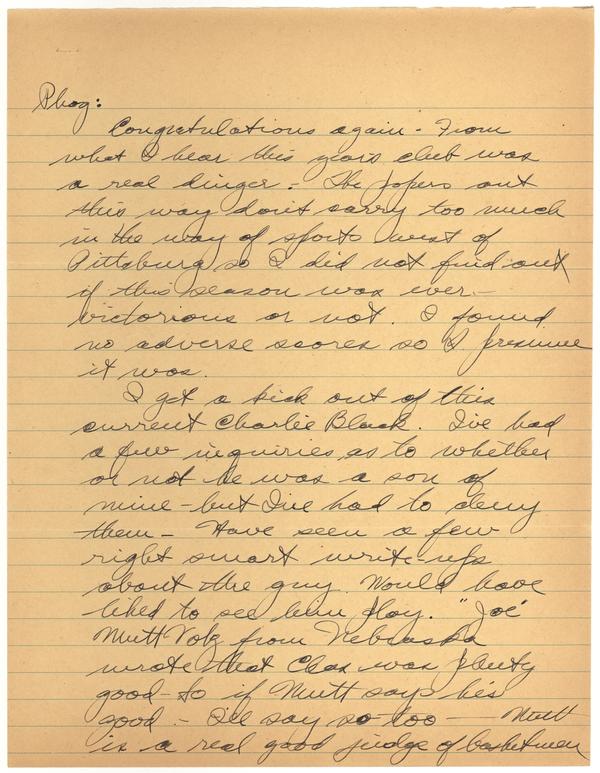 Phog:
Congratulations again - From
what I hear this years club was
a real hinger - The papers out
this way don't carry too much
in the way of sports west of
Pittsburg so I did not find out
if this season was ever-
victorious or not. I found
no adverse scores so I presume
it was.
I get a kick out of this
current Charlie Black. I've had
a few inquiries as to whether
or not he was a son of
mine - but I've had to deny
them - Have seen a few
right smart write-ups
about the guy. Would have
liked to see him play. "Joe"
Mutt Volz from Nebraska
wrote that Chas was plenty
good - so if Mutt says he's
good - I'll say so too - Mutt
is a real good judge of basketmen